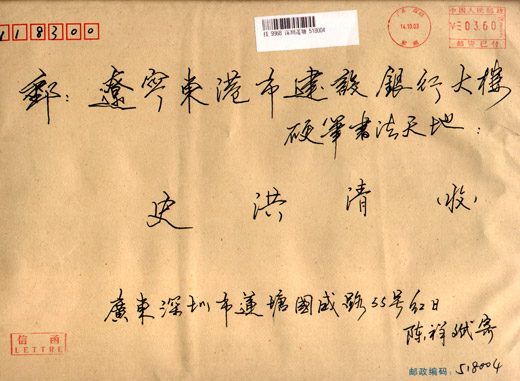 118300
挂 9968 深圳莲塘 518004
14.10.03
中国人民邮政
03.60
邮资已付
郵：遼寧東港市建設銀行大樓
硬筆書法天地：
史洪清(收)
廣東深圳市蓮塘國威路55号红日
陈祥斌寄
信函
LETTRE
邮政编码：518004